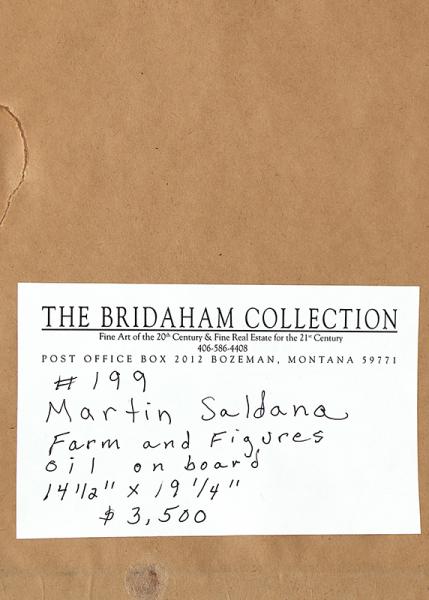 THE BRIDAHAM COLLECTION
Fine Art of the 20th Century & Fine Real Estate for the 21st Century
406-586-4408
POST OFFICE BOX 2012 BOZEMAN, MONTANA 59771
# 199
Martin Saldana
Farm and Figures
oil on board
14 1/2" x 19 1/4"
$ 3,500